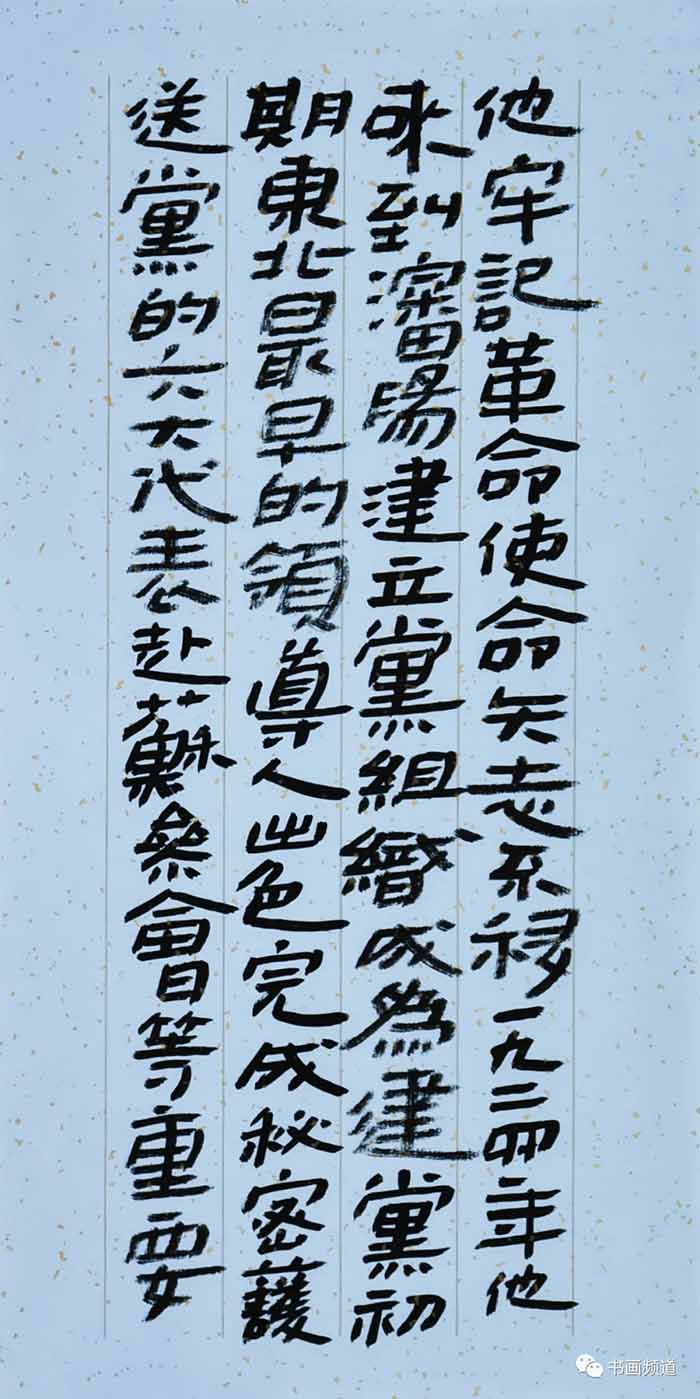 他牢記革命使命矢志不移一九二四年他
來到瀋陽建立黨組織成為建黨初
期東北最早的領導人出色完成秘密護
送黨的六大代表赴蘇參會等重要
书画频道